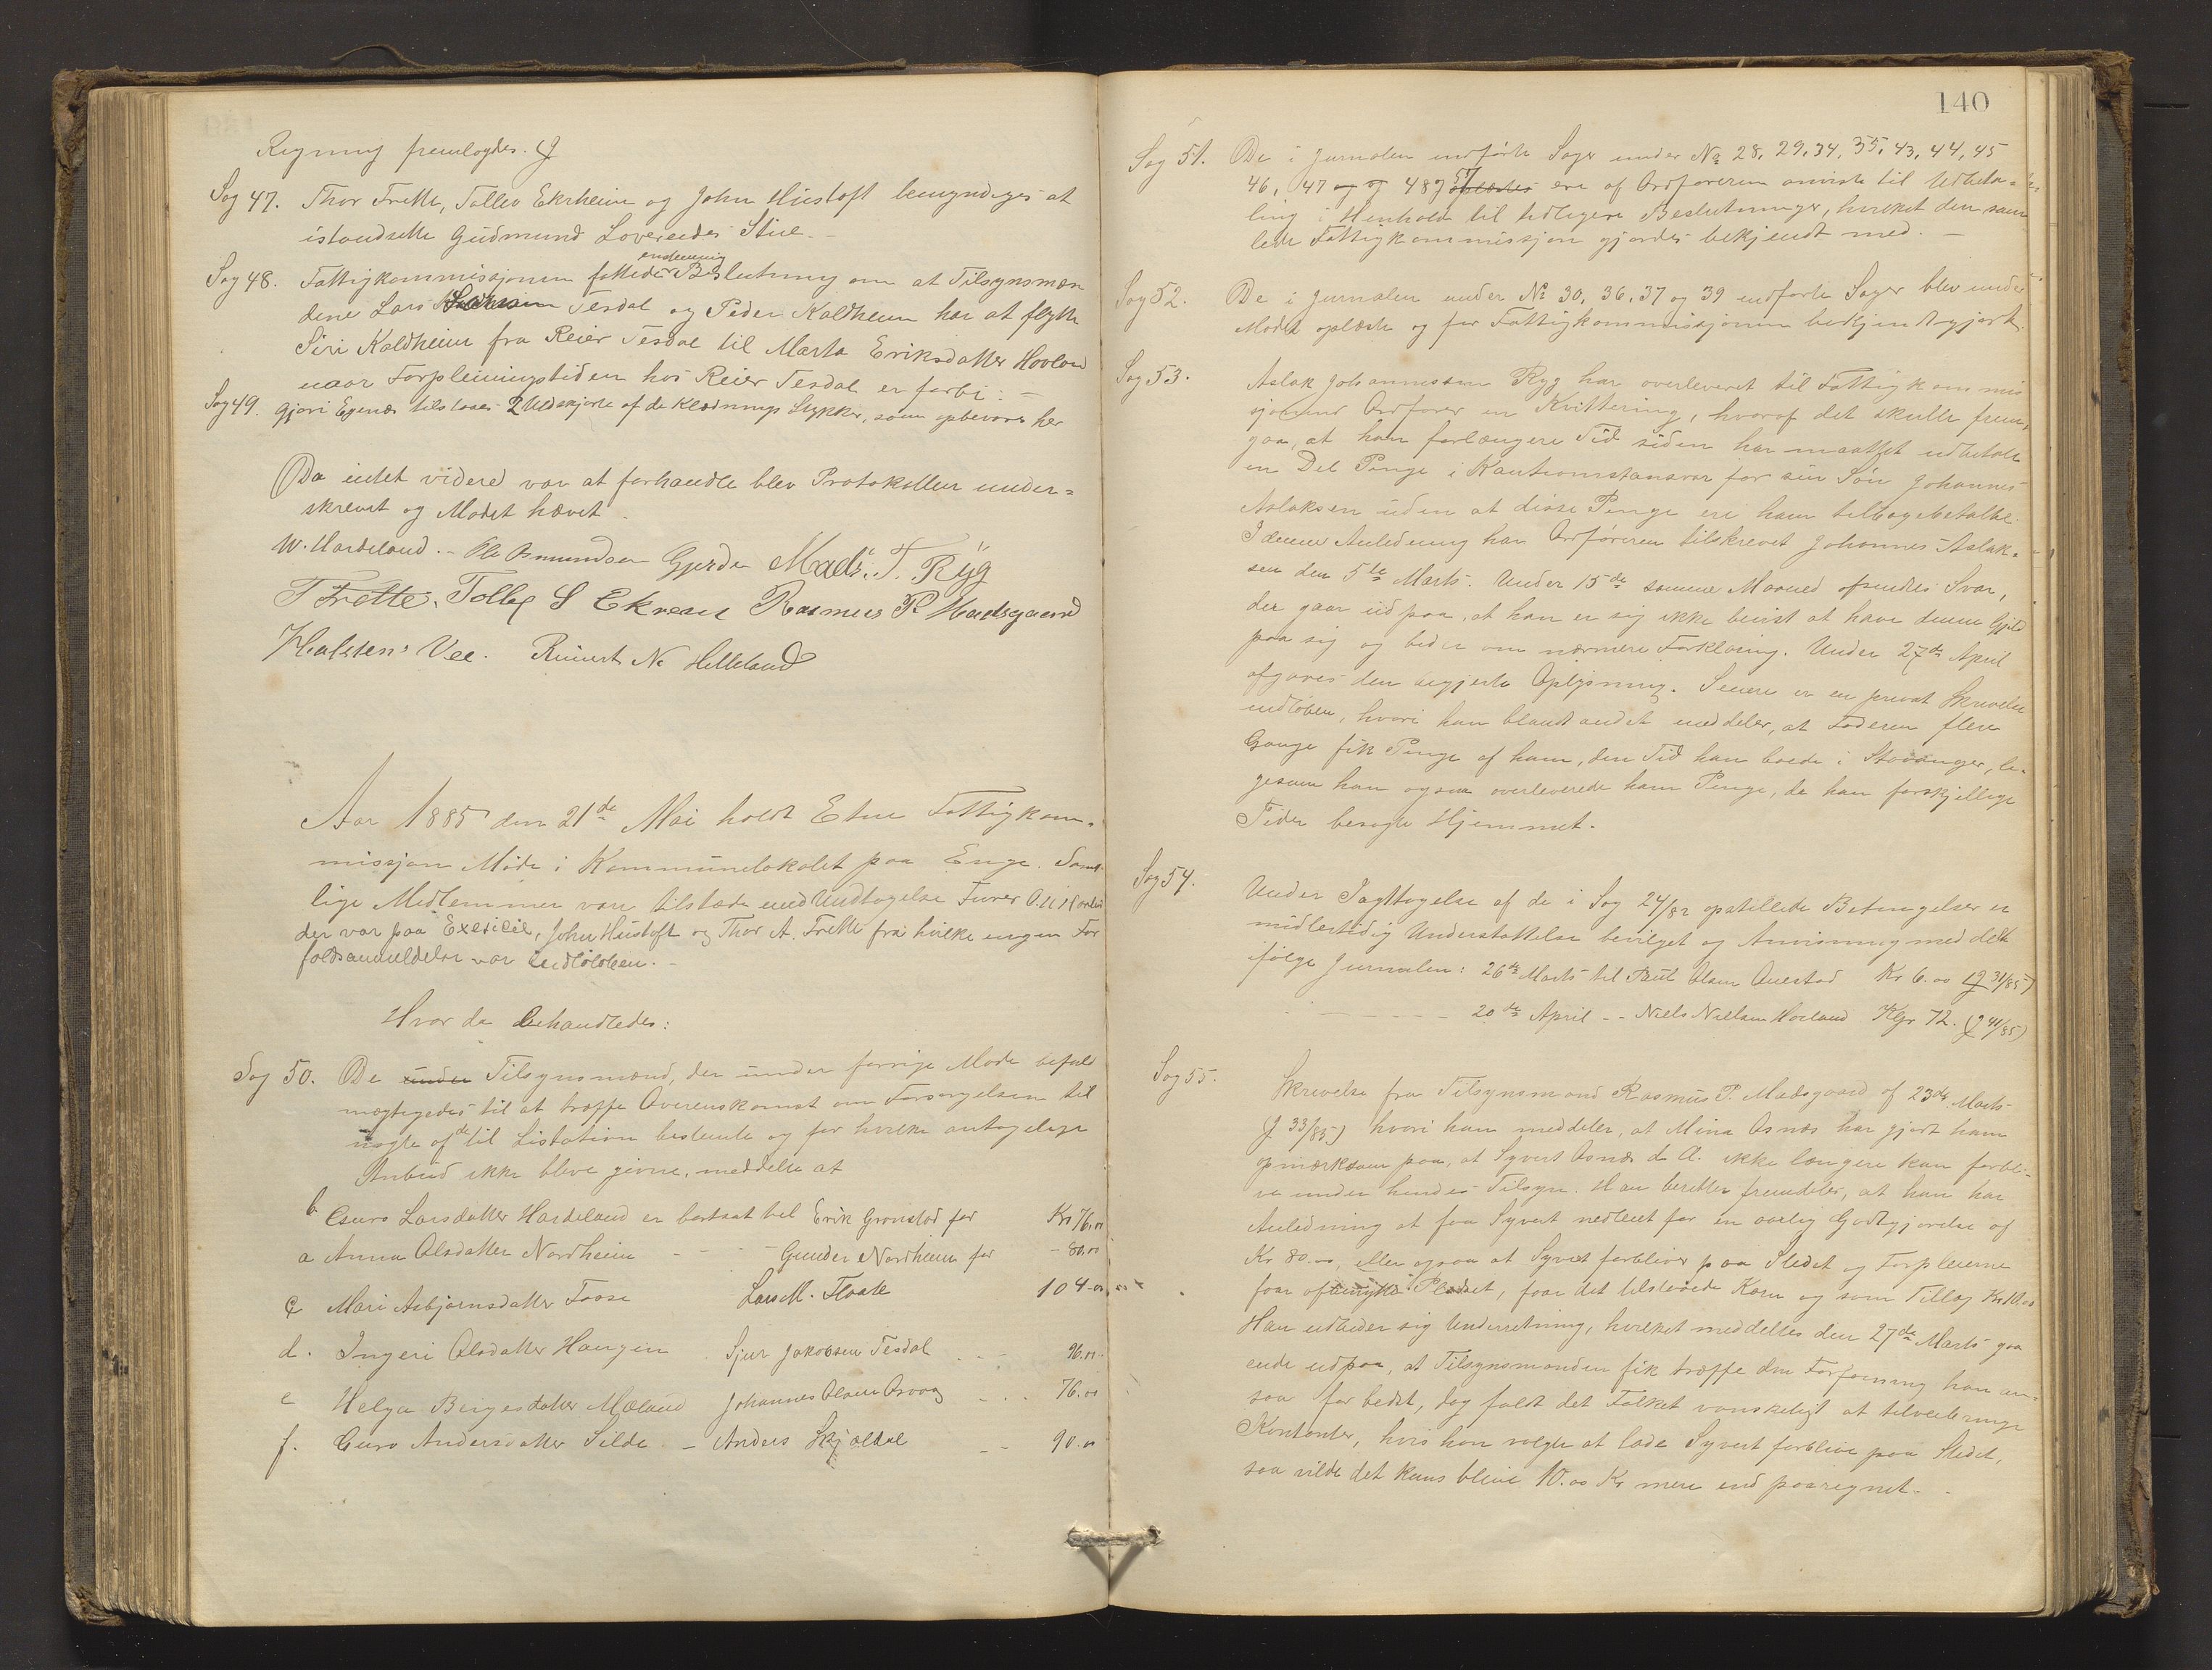 Regning fremlagdes.
Sag 47. Thor Frette, Tollev Ekrheim og John Hustoft bemyndiges at
istandsette Gudmund Lovereides Stue.
Sag 48. Fattigkommissjonen fattede enstemmig Beslutning om at Tilsynsmæn
dene Lars Tesdal og Peder Kaldheim har at flytte
Siri Kaldheim fra Reier Tesdal til Marta Eriksdatter Hovland
naar Forpleiningstiden hos Reier Tesdal er forbi. –
Sag 49. Gjøri Egenæs tilstaaes 2 Uldskjorte af de Klædnings Stykker, som opbevares her
Da intet videre var at forhandle blev Protokollen under=
skrevet og Mødet hævet.
W. Hardeland. – Ole Asmundsen Gjerde Mads. T. Ryg
T Frette. Tollef S Ekrem Rasmus P. Madsgaard
Halsten Vee. Reinert N. Helleland
Aar 1885 den 21de Mai holdt Etne Fattigkom-
missjon Møde i Kommunelokalet paa Enge. Samt-
lige Medlemmer vare tilstæde med Undtagelse Furer
der var paa Exersice, John Hustoft og Thor A. Frette fra hvilke ingen For
faldsanmeldelse var indløben. –
Hvor da behandledes:
Sag 50. De under Tilsynsmænd, der under forrige Møde befuld
mægtigedes til at træffe Overenskomst om Forsørgelsen til
nogle af de til Lisitation bestemte og for hvilke antagelige
Anbud ikke bleve givne, meddelte at
b Guro Larsdatter Hardeland er bortsat til Erik Grønstad for Kr 76.00
a Anna Olsdatter Nordheim - - - Gunder Nordheim for - 80.00
c Mari Asbjørnsdatter Fosse Lars M. Flaate 104.00
d. Ingeri Olsdatter Haugen Sjur Jakobsen Tesdal - - 96.00
e Helga Birgesdatter Mæland Johannes Olsen Osvaag - - 76.00
f. Guro Andersdatter Silde – Anders Skjældal - - 90.00
140
Sag 51. De i Jurnalen indførte Sager under No 28, 29, 34, 35, 43, 44, 45
46, 47 og og 48 oplæstes ere af Ordføreren anviste til Udbeta-
ling i Henhold til tidligere Beslutninger, hvilket den sam
lede Fattigkommissjon gjordes bekjendt med. –
Sag 52. De i Jurnalen under No 30, 36, 37 og 39 indførte Sager blev under
Mødet oplæste og for Fattigkommissjonen bekjendtgjort.
Sag 53. Aslak Johannessen Ryg har overleveret til Fattigkommis
sjonens Ordfører en Kvittering, hvoraf det skulle frem-
gaa, at han forlængere Tid siden har maattet udbetale
en Del Penge i Kautionstansvar for sin Søn Johannes
Aslaksen uden at disse Penge ere ham tilbagebetalte.
I denne Anledning har Ordføreren tilskrevet Johannes Aslak-
sen den 5te Marts. Under 15de samme Maaned afsendtes Svar,
der gaar ud paa, at han er sig ikke bevist at have denne Gjeld
paa sig og beder om nærmere Forklaring. Under 27de April
afgaves den begjærte Oplysning. Senere er en privat Skrivelse
indløben, hvori han blandt andet meddeler, at Faderen flere
Gange fik Penge af ham, den Tid han boede i Stavanger, li-
gesom han ogsaa overleverede ham Penge, da han forskjellige
Tider besøgte Hjemmet.
Sag 54. Under Iagttagelse af de i Sag 24/82 opstillede Betingelser er
midlertidig Understøttelse bevilget og Anvisning meddelt
ifølge Jurnalen: 26de Marts til Paul Olsen Auestad Kr 6.00 (J 31/85)
- - - - - 20de April - - Niels Nielsen Hovland Kgr 72. (J 41/85)
Sag 55. Skrivelse fra Tilsynsmand Rasmus P. Madsgaard af 23de Marts
(J 33/85) hvori han meddeler, at Mina Osnæs har gjort ham
opmærksom paa, at Syvert Osnæs d. A. ikke længere kan forbli-
ve under hendes Tilsyn. Han beretter fremdeles, at han har
Anledning at faa Syvert nedleiet for en aarlig Godtgjørelse af
Kr 80.00, eller ogsaa at Syvert forbliver paa Stedet og Forpleierne
faar afbenytte Pladset, faar det tilstaaede Korn og som Tillæg Kr 10.00
Han udbeder sig Underretning, hvilket meddeltes den 27de Marts gaa
ende ud paa, at Tilsynsmanden fik træffe den Forføining han an-
saa for bedst, dog faldt det Folket vanskeligt at tilveiebringe
Kontanter, hvis han valgte at lade Syvert forblive paa Stedet,
saa vilde det kuns blive 10.00 Kr mere end paaregnet. –